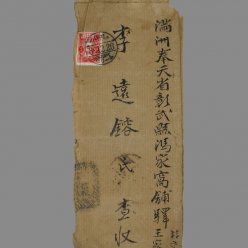 滿洲奉天省彰武縣馮家窩舖驛
王家
李遠鎔民查收